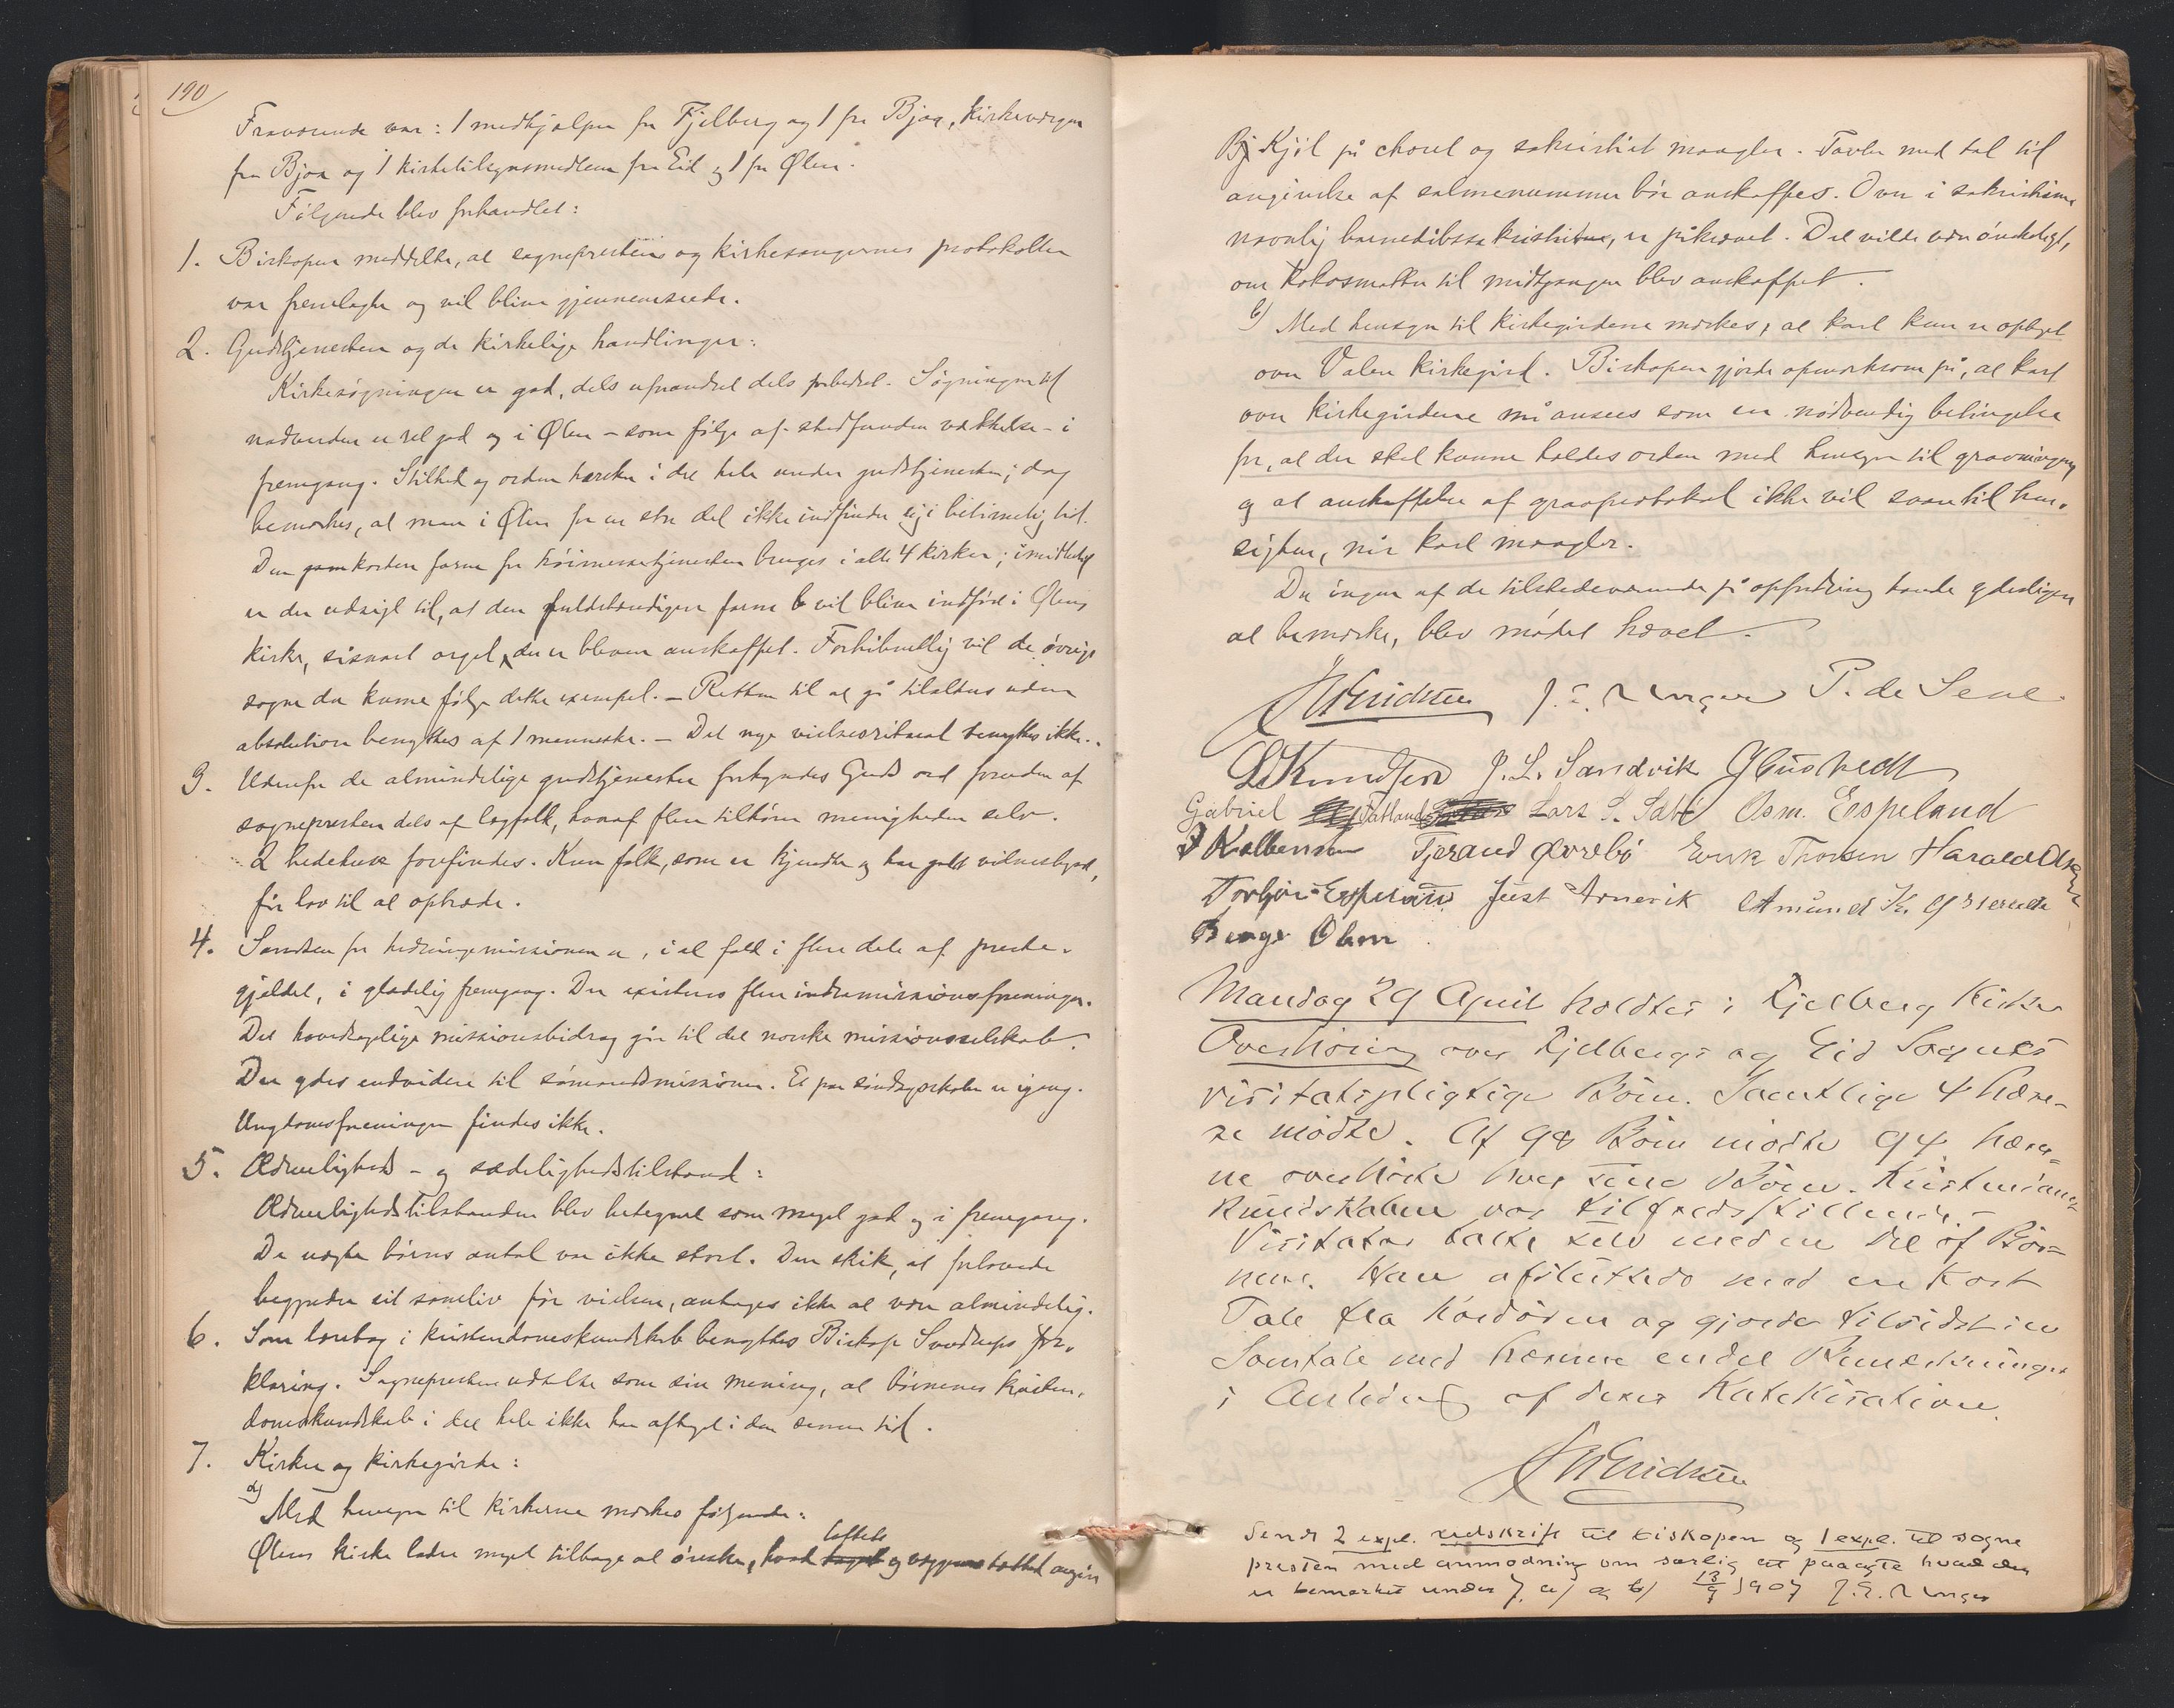 190
Fraværende var: 1 medhjælper fra Fjelberg og 1 fra Bjoa, kirkeværgen
fra Bjoa og 1 kirketilsynsmedlem fra Eid og 1 fra Ølen.
Følgende blev forhandlet:
1. Biskopen meddelte, at sogneprestens og kirkesangernes protokoller
var fremlagte og vil blive gjennemsede.
2. Gudstjenesten og de kirkelige handlinger:
Kirkesøgningen er god, dels uforandret dels forbedret. Søgningen til
nadverden er ret god og i Ølen – som følge af stedfunden vækkelse – i
fremgang. Stilhed og orden hersker i det hele under gudstjenesten; dog
bemerkes, at man i Ølen for en stor del ikke indfinder sig i betimelig tid.
Den kortere form for høimessetjenesten bruges i alle 4 kirker; imidlertid
er der udsigt til, at den fuldstændigere form vil blive indført i Ølens
kirke, såsnart orgel der er bleven anskaffet. Forhåbentlig vil de øvrige
sogne da kunne følge dette exempel. – Retten til at gå tilalters uden
absolution benyttes af 1 menneske. – Det nye vielsesritual benyttes ikke.
3. Udenfor de almindelige gudstjenester forkyndes Guds ord foruden af
sognepresten dels af lægfolk, hvoraf flere tilhører menigheden selv.
2 bedehuse forefindes. Kun folk, som er kjendte og har godt vidnesbyrd,
får lov til at optræde.
4. Sandsen for hedningemissionen er, i al fald i flere dele af preste-
gjeldet, i glædelig fremgang. Der existerer flere indremissionsforeninger.
Det hovedsagelige missionsbidrag går til det norske missionsselskab.
Der ydes endvidere til sømandsmissionen. Et par søndagsskoler er igang.
Ungdomsforeninger findes ikke.
5. Ædrueligheds- og sædelighedstilstand:
Ædruelighedstilstanden blev betegnet som meget god og i fremgang.
De uægte børns antal var ikke stort. Den skik, at forlovede
begynder sit samliv før vielsen, antages ikke at være almindelig.
6. Som lærebog i kristendomskundskab benyttes Biskop Sverdrups for-
klaring. Sognepresten udtalte som sin mening, at børnenes kristen-
domskundskab i det hele ikke har aftaget i den senere tid.
7. Kirker og kirkegårde:
a) Med hensyn til kirkerne merkes følgende:
loftets
Ølens kirke lader meget tilbage at ønske, hvad taget og væggenes tæthed angår
Bj Kjøl på choret og sakristiet mangler. Tavler med tal til
angivelse af salmenummer bør anskaffes. Ovn i sakristierne,
navnlig barnedåbssakristiet, er påkrævet. Det vilde være ønskeligt,
om kokosmatter til midtgangen blev anskaffet.
b) Med hensyn til kirkegårdene merkes, at kart kun er optaget
over Valen kirkegård. Biskopen gjorde opmerksom på, at kart
over kirkegårdene må ansees som en nødvendig betingelse
for, at der skal kunne holdes orden med hensyn til gravningen,
og at anskaffelse af gravprotokol ikke vil svare til hen-
sigten, når kart mangler.
Da ingen af de tilstedeværende på opfordring havde yderligere
at bemerke, blev mødet hævet.
J. E. Unger P. de Seve
Knudsen J. L. Sandvik
Gabriel Lars S. Sæbø Osm. Espeland
Tjerand Øvrebø Harald Olsen
Just Arnevik Amund
Olsen
Mandag 29 April holdtes i Fjelberg Kirke
Overhøring over Fjelbergs og Eid Sognes
visitatspligtige Børn. Samtlige 4 Lære-
re mødte. Af 98 Børn mødte 94. Lærer-
ne overhørte hver sine Børn. Kristendoms-
kundskaben var tilfredsstillende. –
Visitator talte selv med en Del af Bør-
nene. Han afsluttede med en kort
Tale fra Kordøren og gjorde tilsidst i en
Samtale med Lærerne endel Bemerkninger
i Anledning af deres Katekisation.
Sendt 2 expl. udskrift til biskopen og 1 expl. til sogne
presten med anmodning om særlig at paaagte hvad der
er bemærket under 7, a) og b) 1907 J. E. Unger